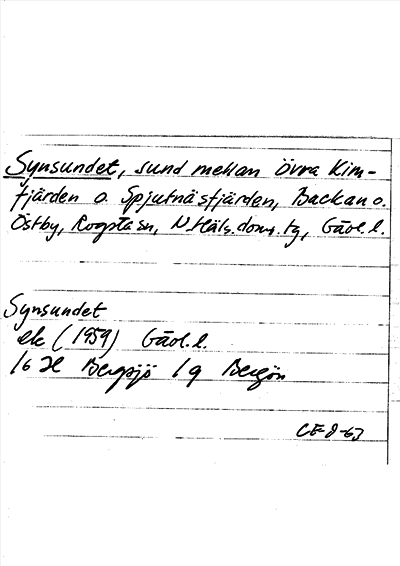 Synsundet, sund mellan Övra Kim-
fjärden o. Spjutnäsfjärden, Backan o.
Östby, Rogsta sn, N. Häls. doms. tg, Gävl. l.
Synsundet
ek (1959) Gävl. l.
16 H Bergsjö / 9 Bergön
CE-8-63